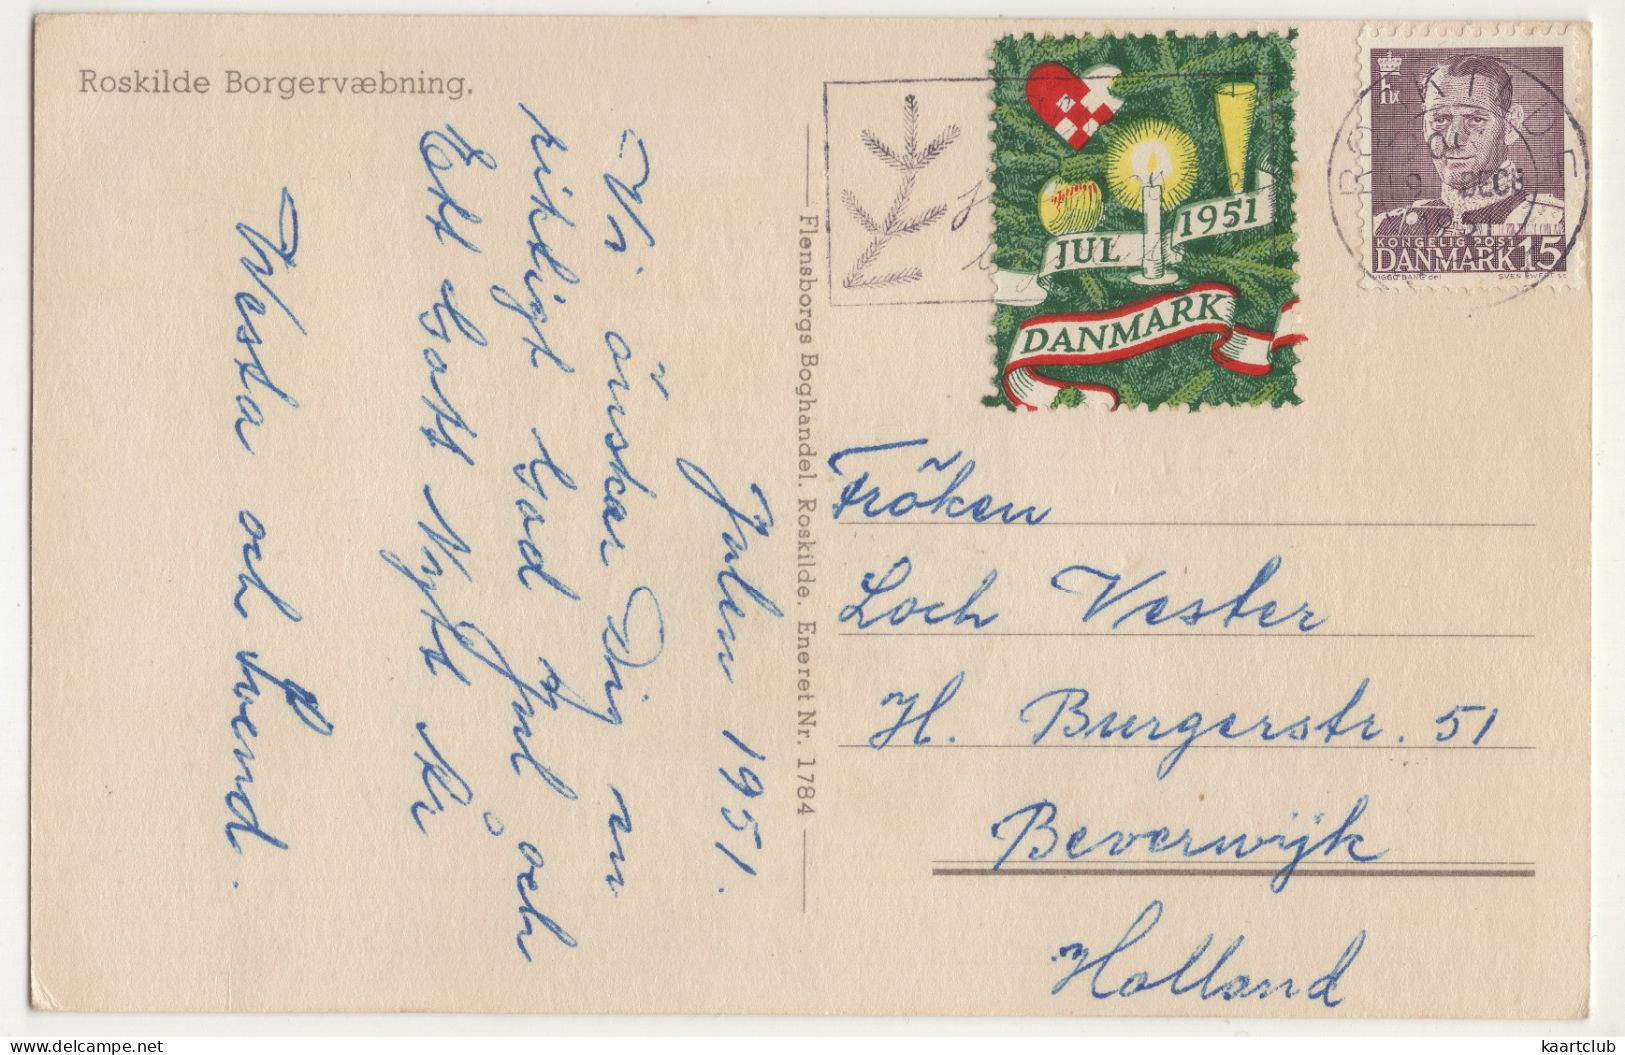 Roskilde Borgervæbning.
Julen 1951.
Vi önskar Dig en
riktigt God Jul och
Ett Gott Nytt År
Vesta och Svend.
Flensborgs Boghandel. Roskilde. Eneret Nr. 1784
JUL 1951
DANMARK
ROSKILDE
DECB
1951
F IX
KONGELIG POST
DANMARK 15
VIGGO BANG del.
SVEN EWERT SC.
Fröken
Loch Vester
H. Burgerstr. 51
Beverwijk
Holland
kaartclub